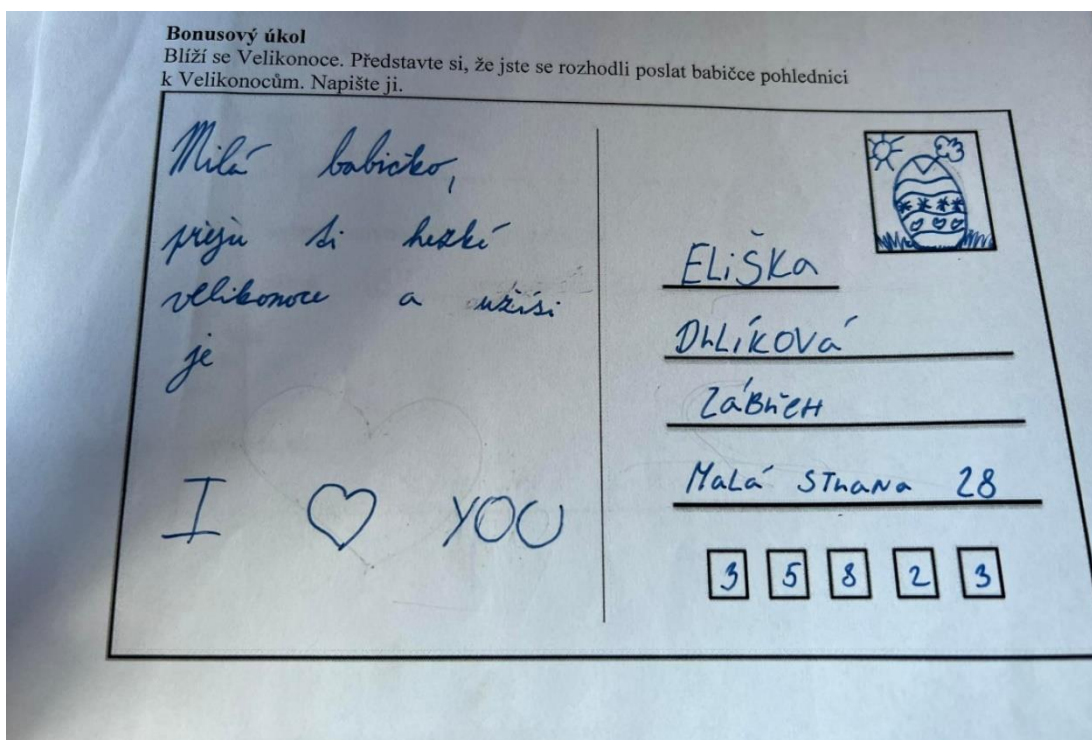 Bonusový úkol
Blíží se Velikonoce. Představte si, že jste se rozhodli poslat babičce pohlednici
k Velikonocům. Napište ji.
Milá babičko,
přeju ti hezké
velikonoce a užísi
je
I ♡ YOU
ELiŠKa
DhLíKOVá
ZáBřEH
MaLá SThaNa 28
3 5 8 2 3